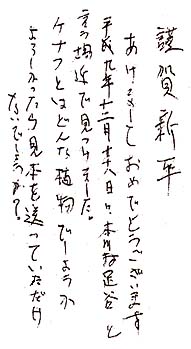 謹賀新年
あけましておめでとうございます
平成九年十二月十八日に、本川村谷と
言う場所で見つけました。
ケナフとはどんな植物でしょうか
よろしかったら見本を送っていただけ
ないでしょうか?